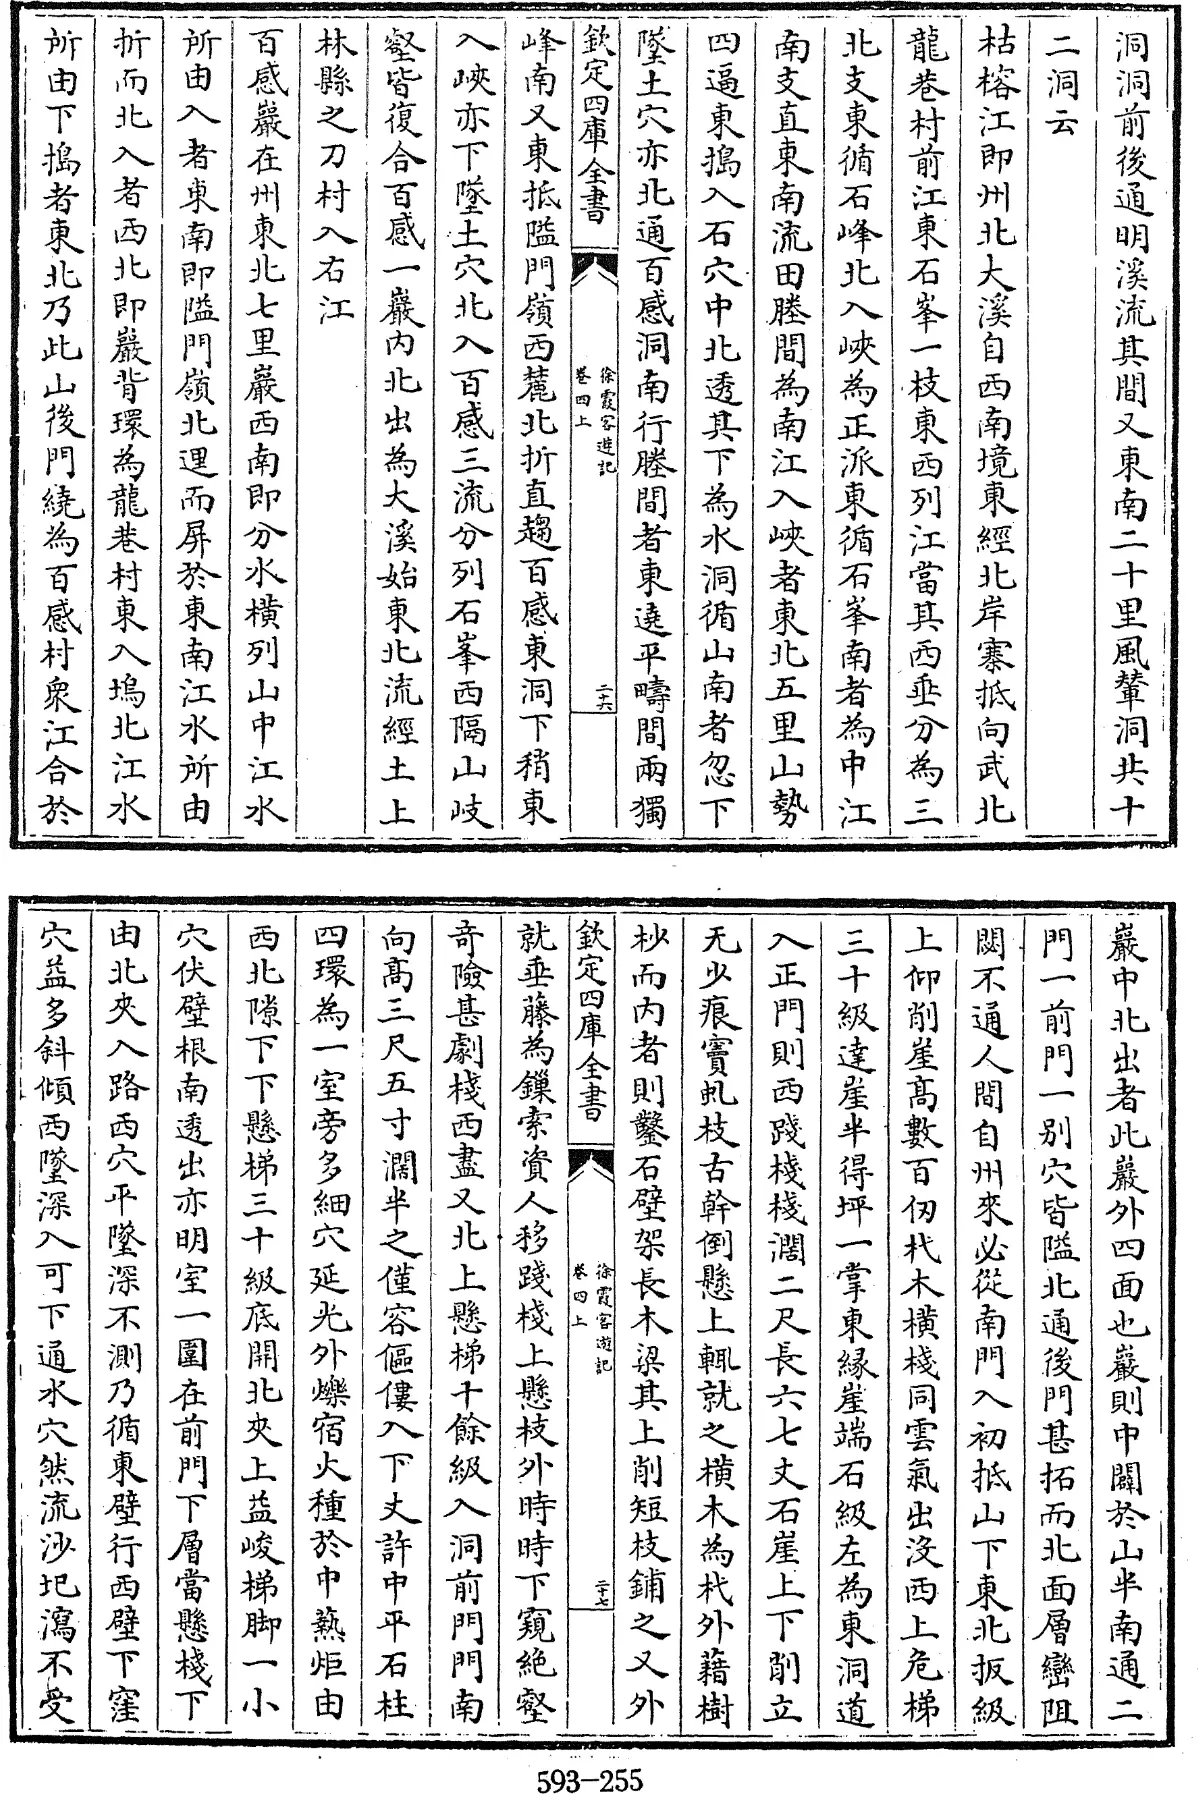 洞洞前後通明溪流其間又東南二十里風輦洞共十
二洞云
枯榕江即州北大溪自西南境東經北岸寨抵向武北
龍巷村前江東石峯一枝東西列江當其西垂分為三
北支東循石峰北入峽為正派東循石峯南者為中江
南支直東南流田塍間為南江入峽者東北五里山勢
四逼東搗入石穴中北透其下為水洞循山南者忽下
墜土穴亦北通百感洞南行塍間者東遶平疇間兩獨
欽定四庫全書
徐霞客遊記
卷四上
二十六
峰南又東抵隘門嶺西麓北折直趨百感東洞下稍東
入峽亦下墜土穴北入百感三流分列石峯西隔山岐
壑皆復合百感一巖內北出為大溪始東北流經土上
林縣之刀村入右江
百感巖在州東北七里巖西南即分水橫列山中江水
所由入者東南即隘門嶺北迴而屏於東南江水所由
折而北入者西北即巖背環為龍巷村東入塢北江水
所由下搗者東北乃此山後門繞為百感村衆江合於
巖中北出者此巖外四面也巖則中闢於山半南通二
門一前門一別穴皆隘北通後門甚拓而北面層巒阻
閟不通人間自州來必從南門入初抵山下東北扳級
上仰削崖高數百仞杙木橫棧同雲氣出沒西上危梯
三十級達崖半得坪一掌東緣崖端石級左為東洞道
入正門則西踐棧棧濶二尺長六七丈石崖上下削立
无少痕竇虬枝古幹倒懸上輒就之橫木為杙外藉樹
杪而內者則鑿石壁架長木梁其上削短枝鋪之又外
欽定四庫全書
徐霞客遊記
卷四上
二十七
就垂藤為鏁索資人移踐棧上懸枝外時時下窺絶壑
奇險甚劇棧西盡又北上懸梯十餘級入洞前門門南
向高三尺五寸濶半之僅容傴僂入下丈許中平石柱
四環為一室旁多細穴延光外爍宿火種於中熱炬由
西北隙下下懸梯三十級底開北夾上益峻梯脚一小
穴伏壁根南透出亦明室一圍在前門下層當懸棧下
由北夾入路西穴平墜深不測乃循東壁行西壁下窪
穴益多斜傾西墜深入可下通水穴然流沙圯瀉不受
593-255